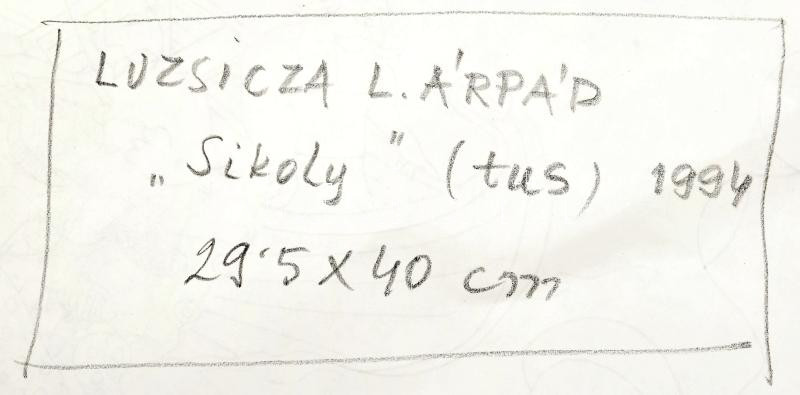 LUZSICZA L. ÁRPÁD
„Sikoly" (tus) 1994
29·5 X 40 cm